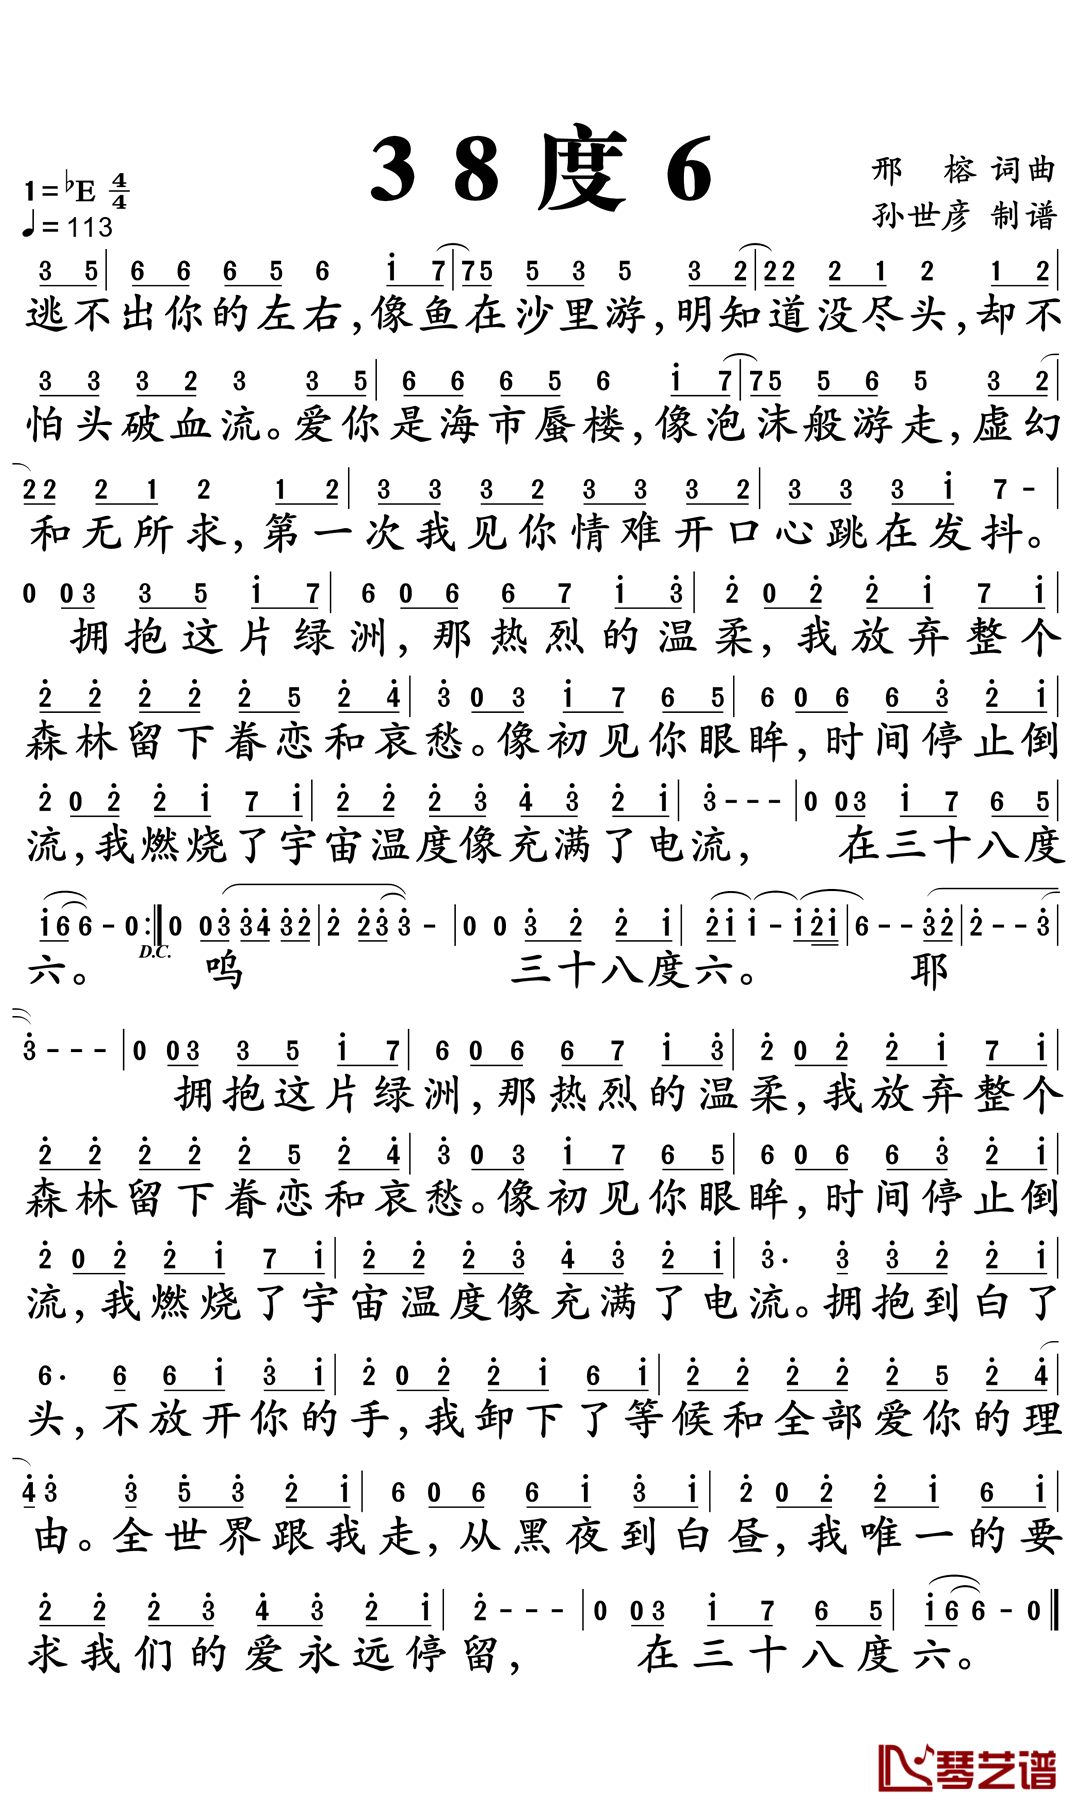 38度6
邢 榕 词曲
1=♭E 4/4
孙世彦 制谱
♩=113
3 5 | 6 6 6 5 6 i 7 | 75 5 3 5 3 2 | 22 2 1 2 1 2 |
逃不出你的左右,像鱼在沙里游,明知道没尽头,却不
3 3 3 2 3 3 5 | 6 6 6 5 6 i 7 | 75 5 6 5 3 2 |
怕头破血流。爱你是海市蜃楼,像泡沫般游走,虚幻
22 2 1 2 1 2 | 3 3 3 2 3 3 3 2 | 3 3 3 i 7 - |
和无所求,第一次我见你情难开口心跳在发抖。
0 03 3 5 i 7 | 6 06 6 7 i 3 | 2 02 2 i 7 i |
拥抱这片绿洲,那热烈的温柔,我放弃整个
2 2 2 2 2 5 2 4 | 3 03 i 7 6 5 | 6 06 6 3 2 i |
森林留下眷恋和哀愁。像初见你眼眸,时间停止倒
2 02 2 i 7 i | 2 2 2 3 4 3 2 i | 3 - - - | 0 03 i 7 6 5 |
流,我燃烧了宇宙温度像充满了电流, 在三十八度
i6 6 - 0 :| 0 03 34 32 | 2 23 3 - | 0 0 3 2 2 i | 2i i - i2i | 6 - - 32 | 2 - - 3 |
D.C.
六。 呜 三十八度六。 耶
3 - - - | 0 03 3 5 i 7 | 6 06 6 7 i 3 | 2 02 2 i 7 i |
拥抱这片绿洲,那热烈的温柔,我放弃整个
2 2 2 2 2 5 2 4 | 3 03 i 7 6 5 | 6 06 6 3 2 i |
森林留下眷恋和哀愁。像初见你眼眸,时间停止倒
2 02 2 i 7 i | 2 2 2 3 4 3 2 i | 3· 3 3 2 2 i |
流,我燃烧了宇宙温度像充满了电流。拥抱到白了
6· 6 6 i 3 i | 2 02 2 i 6 i | 2 2 2 2 2 5 2 4 |
头,不放开你的手,我卸下了等候和全部爱你的理
4 3 3 5 3 2 i | 6 06 6 i 3 i | 2 02 2 i 6 i |
由。全世界跟我走,从黑夜到白昼,我唯一的要
2 2 2 3 4 3 2 i | 2 - - - | 0 03 i 7 6 5 | i6 6 - 0 ||
求我们的爱永远停留, 在三十八度六。
琴艺谱